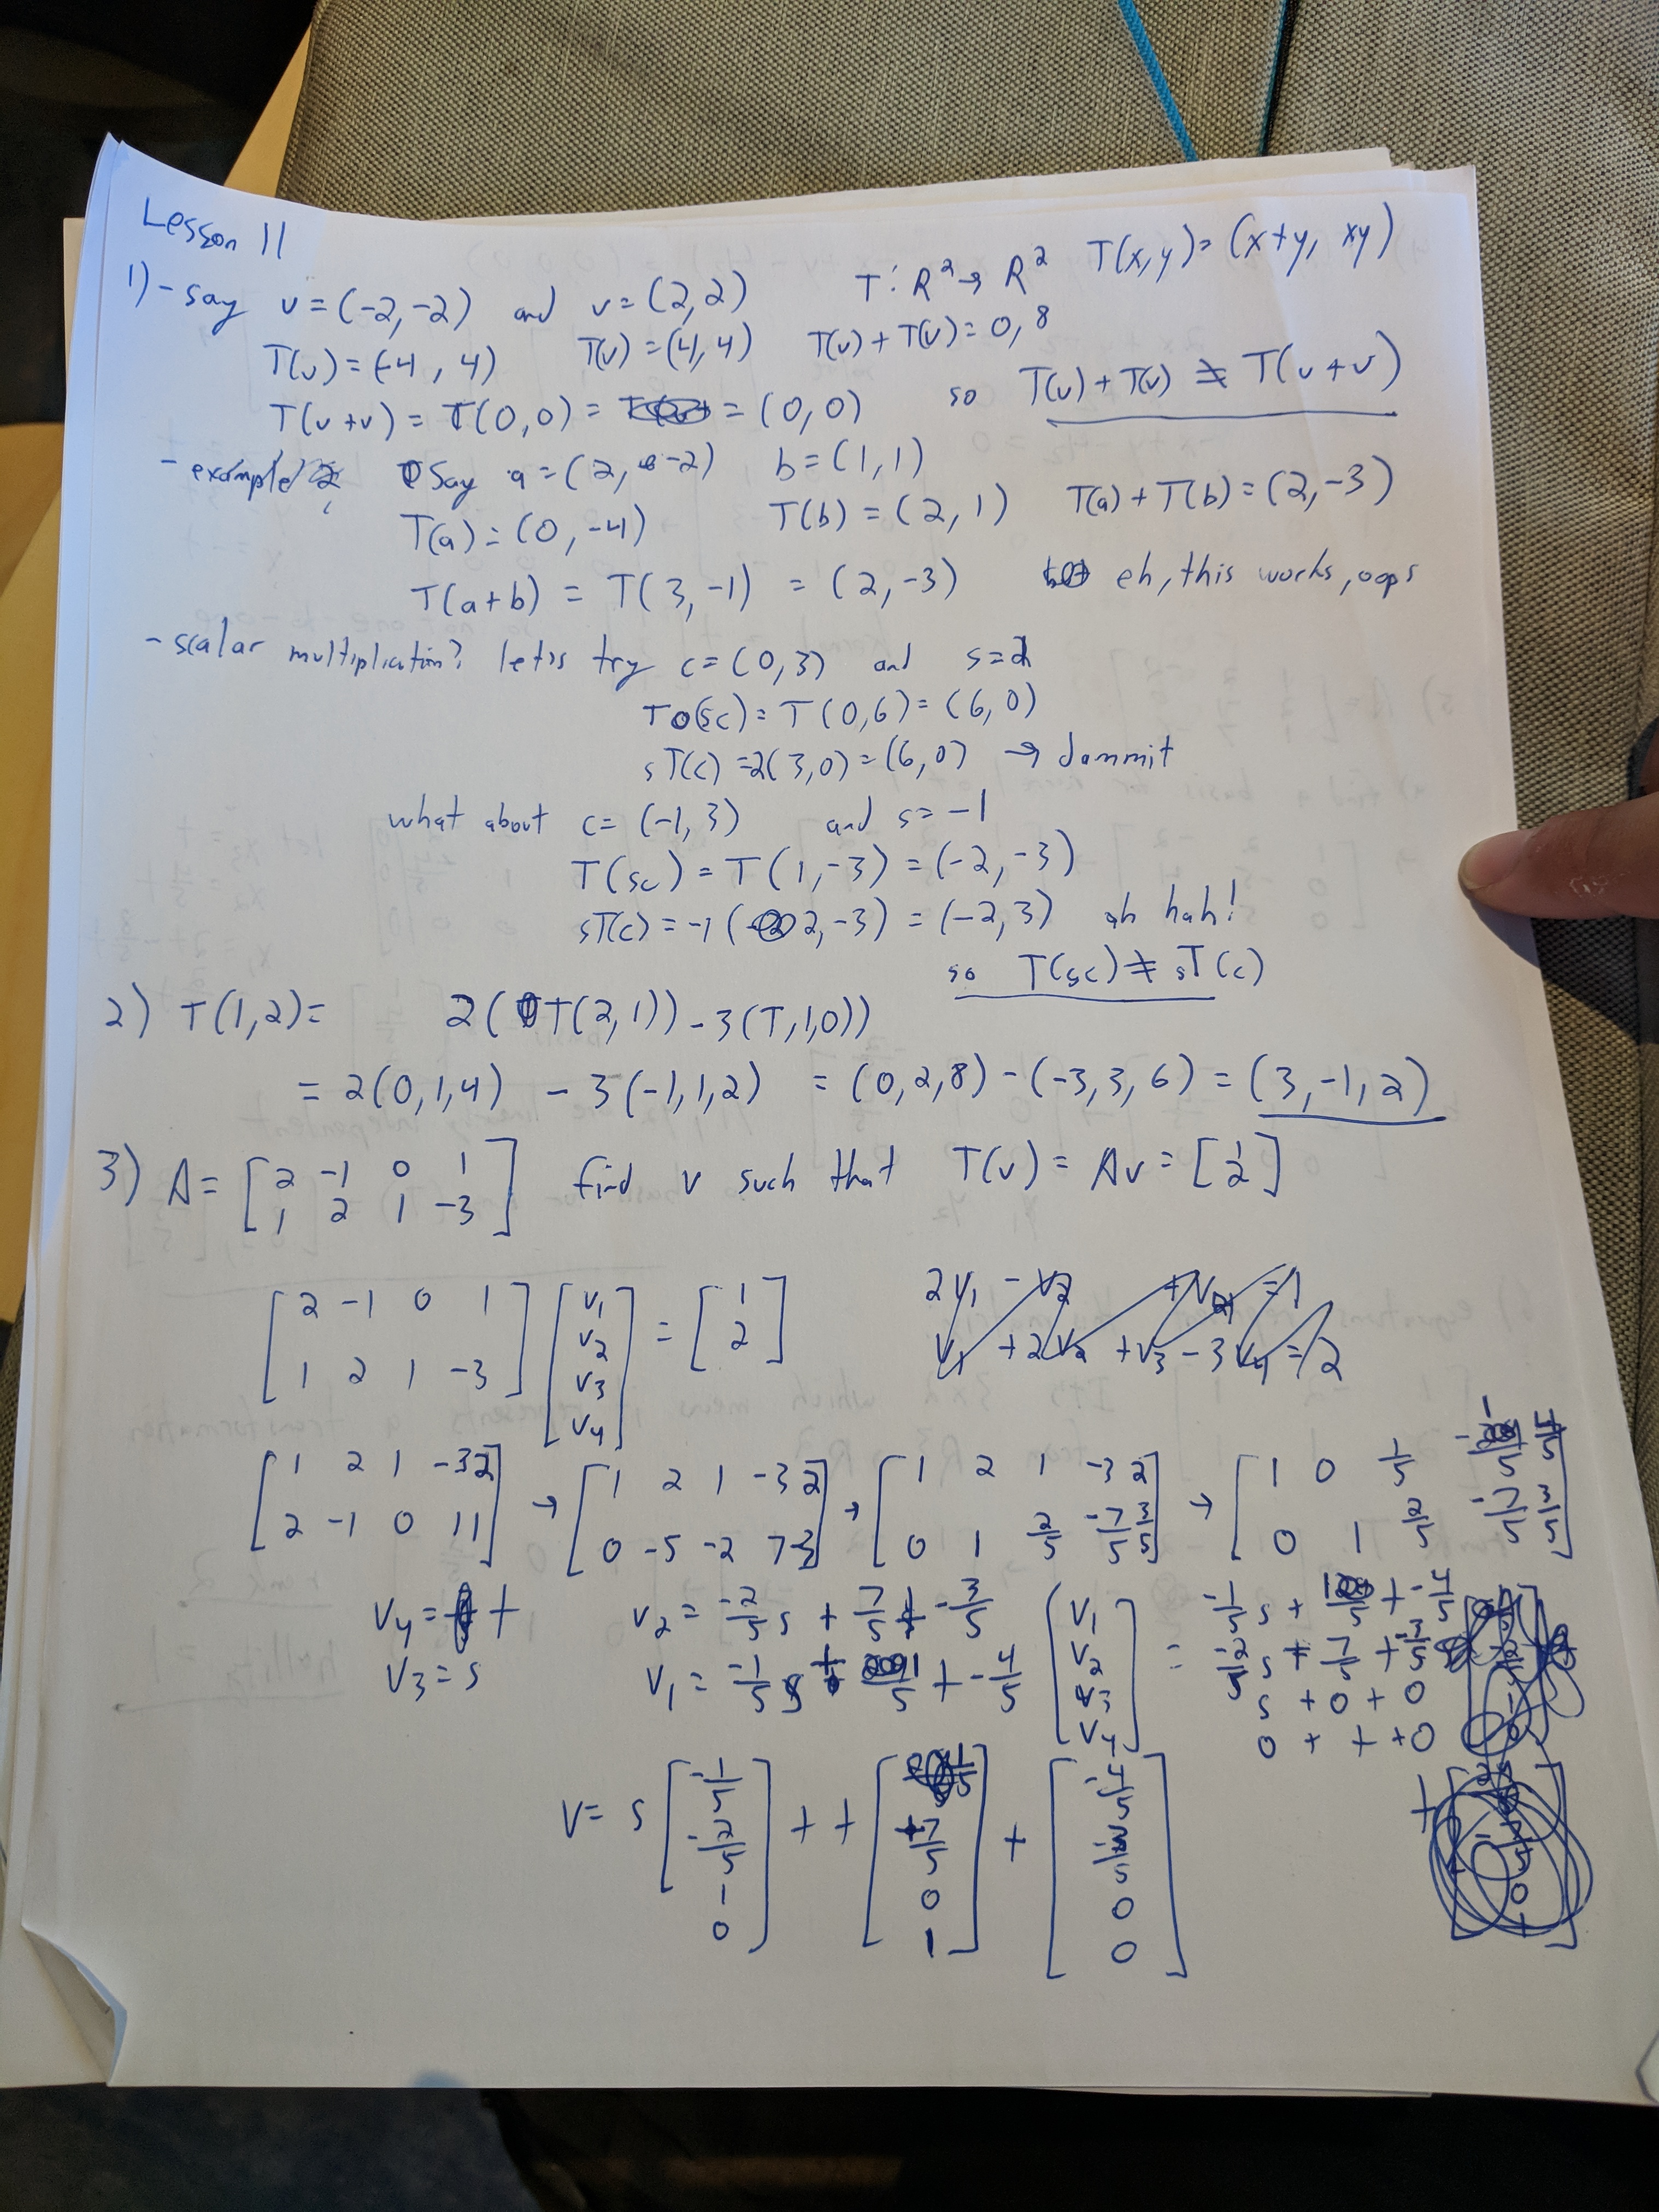 Lesson 11
1) - say v = (-2,-2) and v = (2,2) T: R² → R² T(x,y) = (x+y, xy)
T(v) = (-4, 4) T(v) = (4,4) T(v) + T(v) = 0, 8
T(v+v) = T(0,0) = = (0,0) so T(v) + T(v) ≠ T(v+v)
- example Say a = (2, -2) b = (1,1)
T(a) = (0, -4) T(b) = (2, 1) T(a) + T(b) = (2, -3)
T(a+b) = T(3, -1) = (2, -3) eh, this works, oops
- scalar multiplication? let's try c = (0,3) and s = 2
T(sc) = T(0,6) = (6,0)
sT(c) = 2(3,0) = (6,0) → dammit
what about c = (-1, 3) and s = -1
T(sc) = T(1,-3) = (-2, -3)
sT(c) = -1 (2,-3) = (-2,3) ah hah!
so T(sc) ≠ sT(c)
2) T(1,2) = 2(T(2,1)) - 3(T,1,0))
= 2(0,1,4) - 3(-1,1,2) = (0,2,8) - (-3,3,6) = (3,-1,2)
3) A = [2 -1 0 1
1 2 1 -3] find v such that T(v) = Av = [1
2]
[2 -1 0 1
1 2 1 -3] [v1
v2
v3
v4] = [1
2]
2v1 - v2 = 1
v1 + 2v2 + v3 - 3v4 = 2
[1 2 1 -3 2
2 -1 0 1 1] → [1 2 1 -3 2
0 -5 -2 7 -3] → [1 2 1 -3 2
0 1 2/5 -7/5 3/5] → [1 0 1/5 4/5
0 1 2/5 -7/5 3/5]
v4 = t v2 = -2/5 s + 7/5 t - 3/5
v3 = s v1 = -1/5 s + 1/5 t - 4/5
[v1
v2
v3
v4] = -1/5 s + 1/5 t - 4/5
-2/5 s + 7/5 t -3/5
s + 0 + 0
0 + t + 0
v = s [-1/5
-2/5
1
0] + t [1/5
+7/5
0
1] + [-4/5
-3/5
0
0]